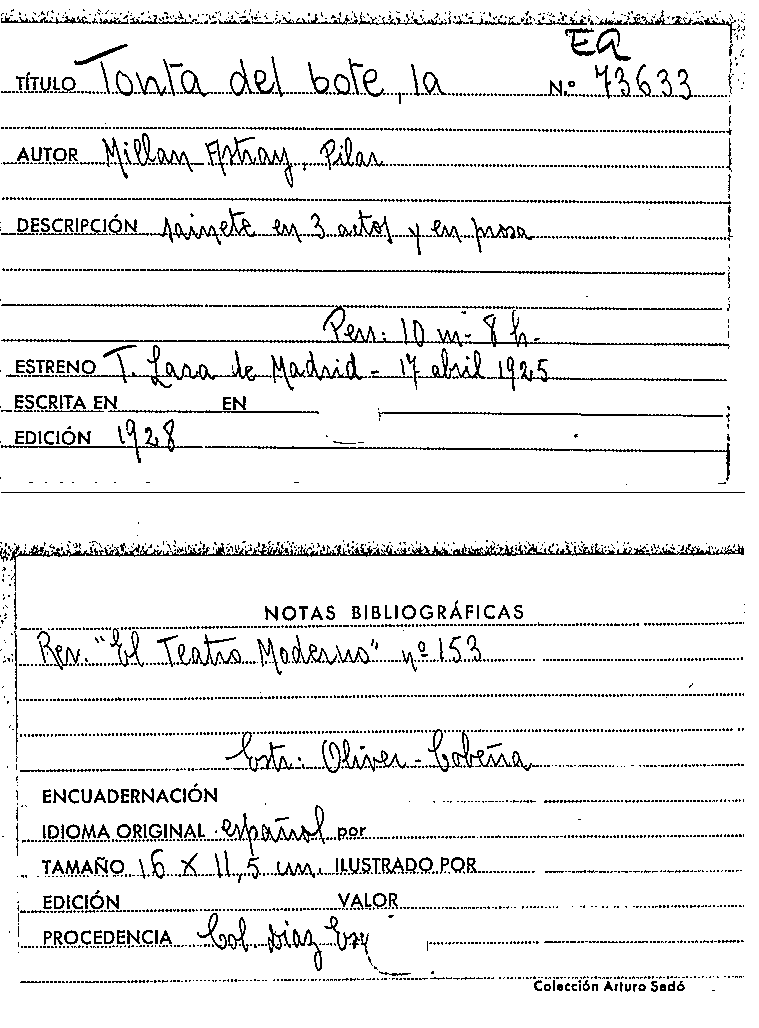 EA
TÍTULO Tonta del bote, la N.º 73633
AUTOR Millan Astray, Pilar
DESCRIPCIÓN sainete en 3 actos y en prosa
Pers: 10 m- 8 h-
ESTRENO T. Lara de Madrid - 17 abril 1925
ESCRITA EN EN
EDICIÓN 1928
NOTAS BIBLIOGRÁFICAS
Rev. "El Teatro Moderno" nº 153
Estr: Oliver - Cobeña
ENCUADERNACIÓN
IDIOMA ORIGINAL español por
TAMAÑO 16 X 11,5 cm. ILUSTRADO POR
EDICIÓN VALOR
PROCEDENCIA Col. Díaz Esq
Colección Arturo Sedó